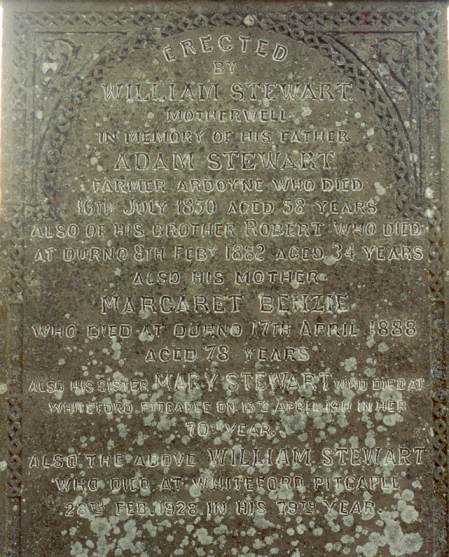 ERECTED
BY
WILLIAM STEWART
MOTHERWELL
IN MEMORY OF HIS FATHER
ADAM STEWART
FARMER ARDOYNE WHO DIED
16TH JULY 1850 AGED 58 YEARS
ALSO OF HIS BROTHER ROBERT WHO DIED
AT DURNO 8TH FEBY 1882 AGED 34 YEARS
ALSO HIS MOTHER
MARGARET BENZIE
WHO DIED AT DURNO 17TH APRIL 1888
AGED 78 YEARS
ALSO HIS SISTER MARY STEWART WHO DIED AT
WHITEFORD, PITCAPLE ON APRIL 1911 IN HER
70TH YEAR.
ALSO THE ABOVE WILLIAM STEWART
WHO DIED AT WHITEFORD PITCAPLE
FEB. 1928 IN HIS 79TH YEAR.